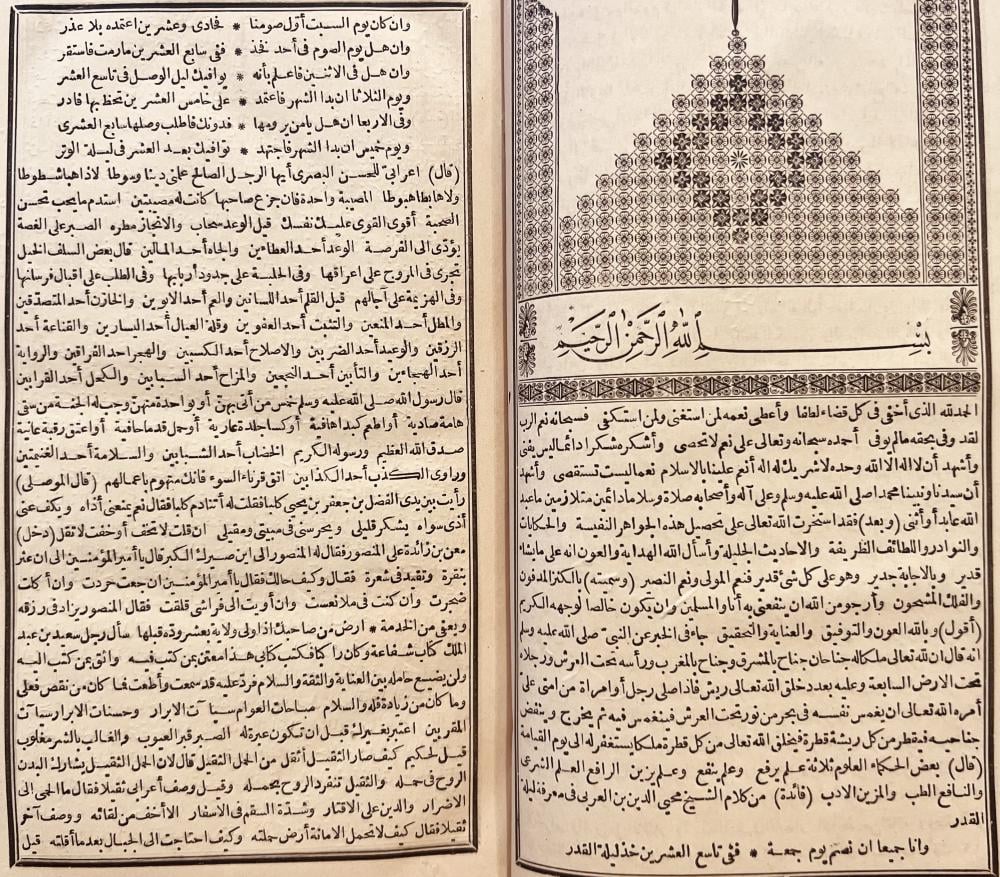 بسم الله الرحمن الرحيم
الحمد لله الذى أخفى فى كل قضاء لطفا وأعطى نعمه لمن استغنى ولمن استكفى فسبحانه نعم الرب
لقد وفى بحقه مالم يوفى أحمده سبحانه وتعالى على نعم لا تحصى وأشكره شكرا دائما ليس يفنى
وأشهد أن لا اله الا الله وحده لا شريك له اله أنعم علينا بالاسلام نعما ليست تستقصى وأشهد
أن سيدنا ونبينا محمدا صلى الله عليه وسلم وعلى آله وأصحابه صلاة وسلاما دائمين متلازمين ما عبد
الله عابد أو أثنى (وبعد) فقد استخرت الله تعالى على تحصيل هذه الجواهر النفيسة والحكايات
والنوادر واللطائف الظريفة والاحاديث الجليلة وأسأل الله الهداية والعون انه على ما يشاء
قدير وبالاجابة جدير وهو على كل شئ قدير فنعم المولى ونعم النصير (وسميته) بالكنز المدفون
والفلك المشحون وأرجو من الله ان ينفعنى به أنا والمسلمين وان يكون خالصا لوجهه الكريم
(أقول) وبالله العون والتوفيق والعناية والتحقيق جاء فى الخبر عن النبى صلى الله عليه وسلم
انه قال ان لله تعالى ملكا له جناحان جناح بالمشرق وجناح بالمغرب ورأسه تحت العرش ورجلاه
تحت الارض السابعة وعليه بعدد خلق الله تعالى ريش فاذا صلى رجل أو امرأة من امتى علىّ
أمره الله تعالى ان يغمس نفسه فى بحر من نور تحت العرش فينغمس فيه ثم يخرج وينفض
جناحيه فيقطر من كل ريشة قطرة فيخلق الله تعالى من كل قطرة ملكا يستغفر له الى يوم القيامة
(قال) بعض الحكماء العلوم ثلاثة علم يرفع وعلم ينفع وعلم يزين فالرافع العلم الشرعى
والنافع الطب والمزين الادب (فائدة) من كلام الشيخ محيي الدين بن العربى فى معرفة ليلة
القدر
وانا جميعا ان نصم يوم جمعة * ففى تاسع العشرين خذ ليلة القدر
وان كان يوم السبت أول صومنا * فحادى وعشرين اعتمده بلا عذر
وان هل يوم الصوم فى أحد فخذ * ففى سابع العشرين مارمت فاستقر
وان هل فى الاثنين فاعلم بأنه * يوافيك ليل الوصل فى تاسع العشر
ويوم الثلاثا ان بدا الشهر فاعتمد * على خامس العشرين تحظ بها فادر
وفى الاربعا ان هل يا من يرومها * فدونك فاطلب وصلها سابع العشرى
ويوم خميس ان بدا الشهر فاجتهد * توافيك بعد العشر فى ليلة الوتر
(قال) اعرابى للحسن البصرى أيها الرجل الصالح علمنى دينا وسوطا لا ذاهبا شطوطا
ولا هابطا هبوطا المصيبة واحدة فان جزع صاحبها كانت له مصيبتين استدم ما يحب تحسن
الصحبة أقوى القوى غلبتك نفسك قيل الوعد سحاب والانجاز مطره الصبر على الغصة
يؤدى الى الفرصة الوعد أحد العطاءين والجاه أحد المالين قال بعض السلف الخيل
تجرى فى المروج على اعراقها وفى الحلبة على جدود أربابها وفى الطلب على اقبال فرسانها
وفى الهزيمة على آجالهم قيل القلم أحد اللسانين والعم أحد الابوين والخازن أحد المتصدقين
والمطل أحد المنعين والتثبت أحد العفوين وقلة العيال أحد اليسارين والقناعة أحد
الرزقين والوعيد أحد الضربين والاصلاح أحد الكسبين والهجر أحد الفراقين والرواية
أحد الهجاءين والتأبين أحد النجيعين والمزاح أحد السبابين والكحل أحد القرابين
قال رسول الله صلى الله عليه وسلم خمس من أتى بهن أو بواحدة منهن وجب له الجنة من سقى
هامة صادية أو اطعم كبدا هافية أو كسا جلدة عارية أو حمل قدما حافية أو اعتق رقبة عانية
صدق الله العظيم ورسوله الكريم الخضاب أحد الشبابين والسلامة أحد الغنيمتين
وراوى الكذب أحد الكذابين اتق قرناء السوء فانك متهوم باعمالهم (قال الموصلى)
رأيت بين يدى الفضل بن جعفر بن يحيى كلبا فقلت له أتنادم كلبا فقال نعم يمنعنى أذاه ويكف عنى
أذى سواه يشكر قليلى ويحرسنى فى مبيتى ومقيلى ان قلت لا تخف أو خفت لا تقل (دخل)
معن بن زائدة على المنصور فقال له المنصور الى اين صيرك الكبر قال يا أمير المؤمنين الى ان عثر
بنقرة وتقيد فى شعرة فقال وكيف حالك فقال يا أمير المؤمنين ان جعت حردت وان أكلت
ضجرت وأن كنت فى ملا نعست وان أويت الى فراشى قلقت فقال المنصور يزاد فى رزقه
ويعفى من الخدمة * ارض من صاحبك اذا ولى ولاية بعشر وده قبلها سأل رجل سعيد بن عبد
الملك كتاب شفاعة وكان راكبا فكتب كتابى هذا معتن بمن كتب فيه واثق بمن كتب اليه
ولن يضيع حامله بين العناية والثقة والسلام فرد عليه قد سمعت وأطعت فما كان من نقص فعلى
وما كان من زيادة فله والسلام مباحات العوام سيآت الابرار وحسنات الابرار سيآت
المقربين اعتبر بغيرك قبل ان تكون عبرة له الصبر قبر العيوب والغالب بالشر مغلوب
قيل لحكيم كيف صار الثقيل أثقل من الحمل الثقيل قال لان الحمل الثقيل يشارك البدن
الروح فى حمله والثقيل تنفرد الروح بحمله وقيل وصف أعرابى ثقيلا فقال ما الحمى الى
الاضرار والدين على الاقتار وشدة السقم فى الاسفار الا أخف من لقائه ووصف آخر
ثقيلا فقال كيف لا تحمل الامانة أرض حملته وكيف احتاجت الى الجبال بعد ما أقلته قيل